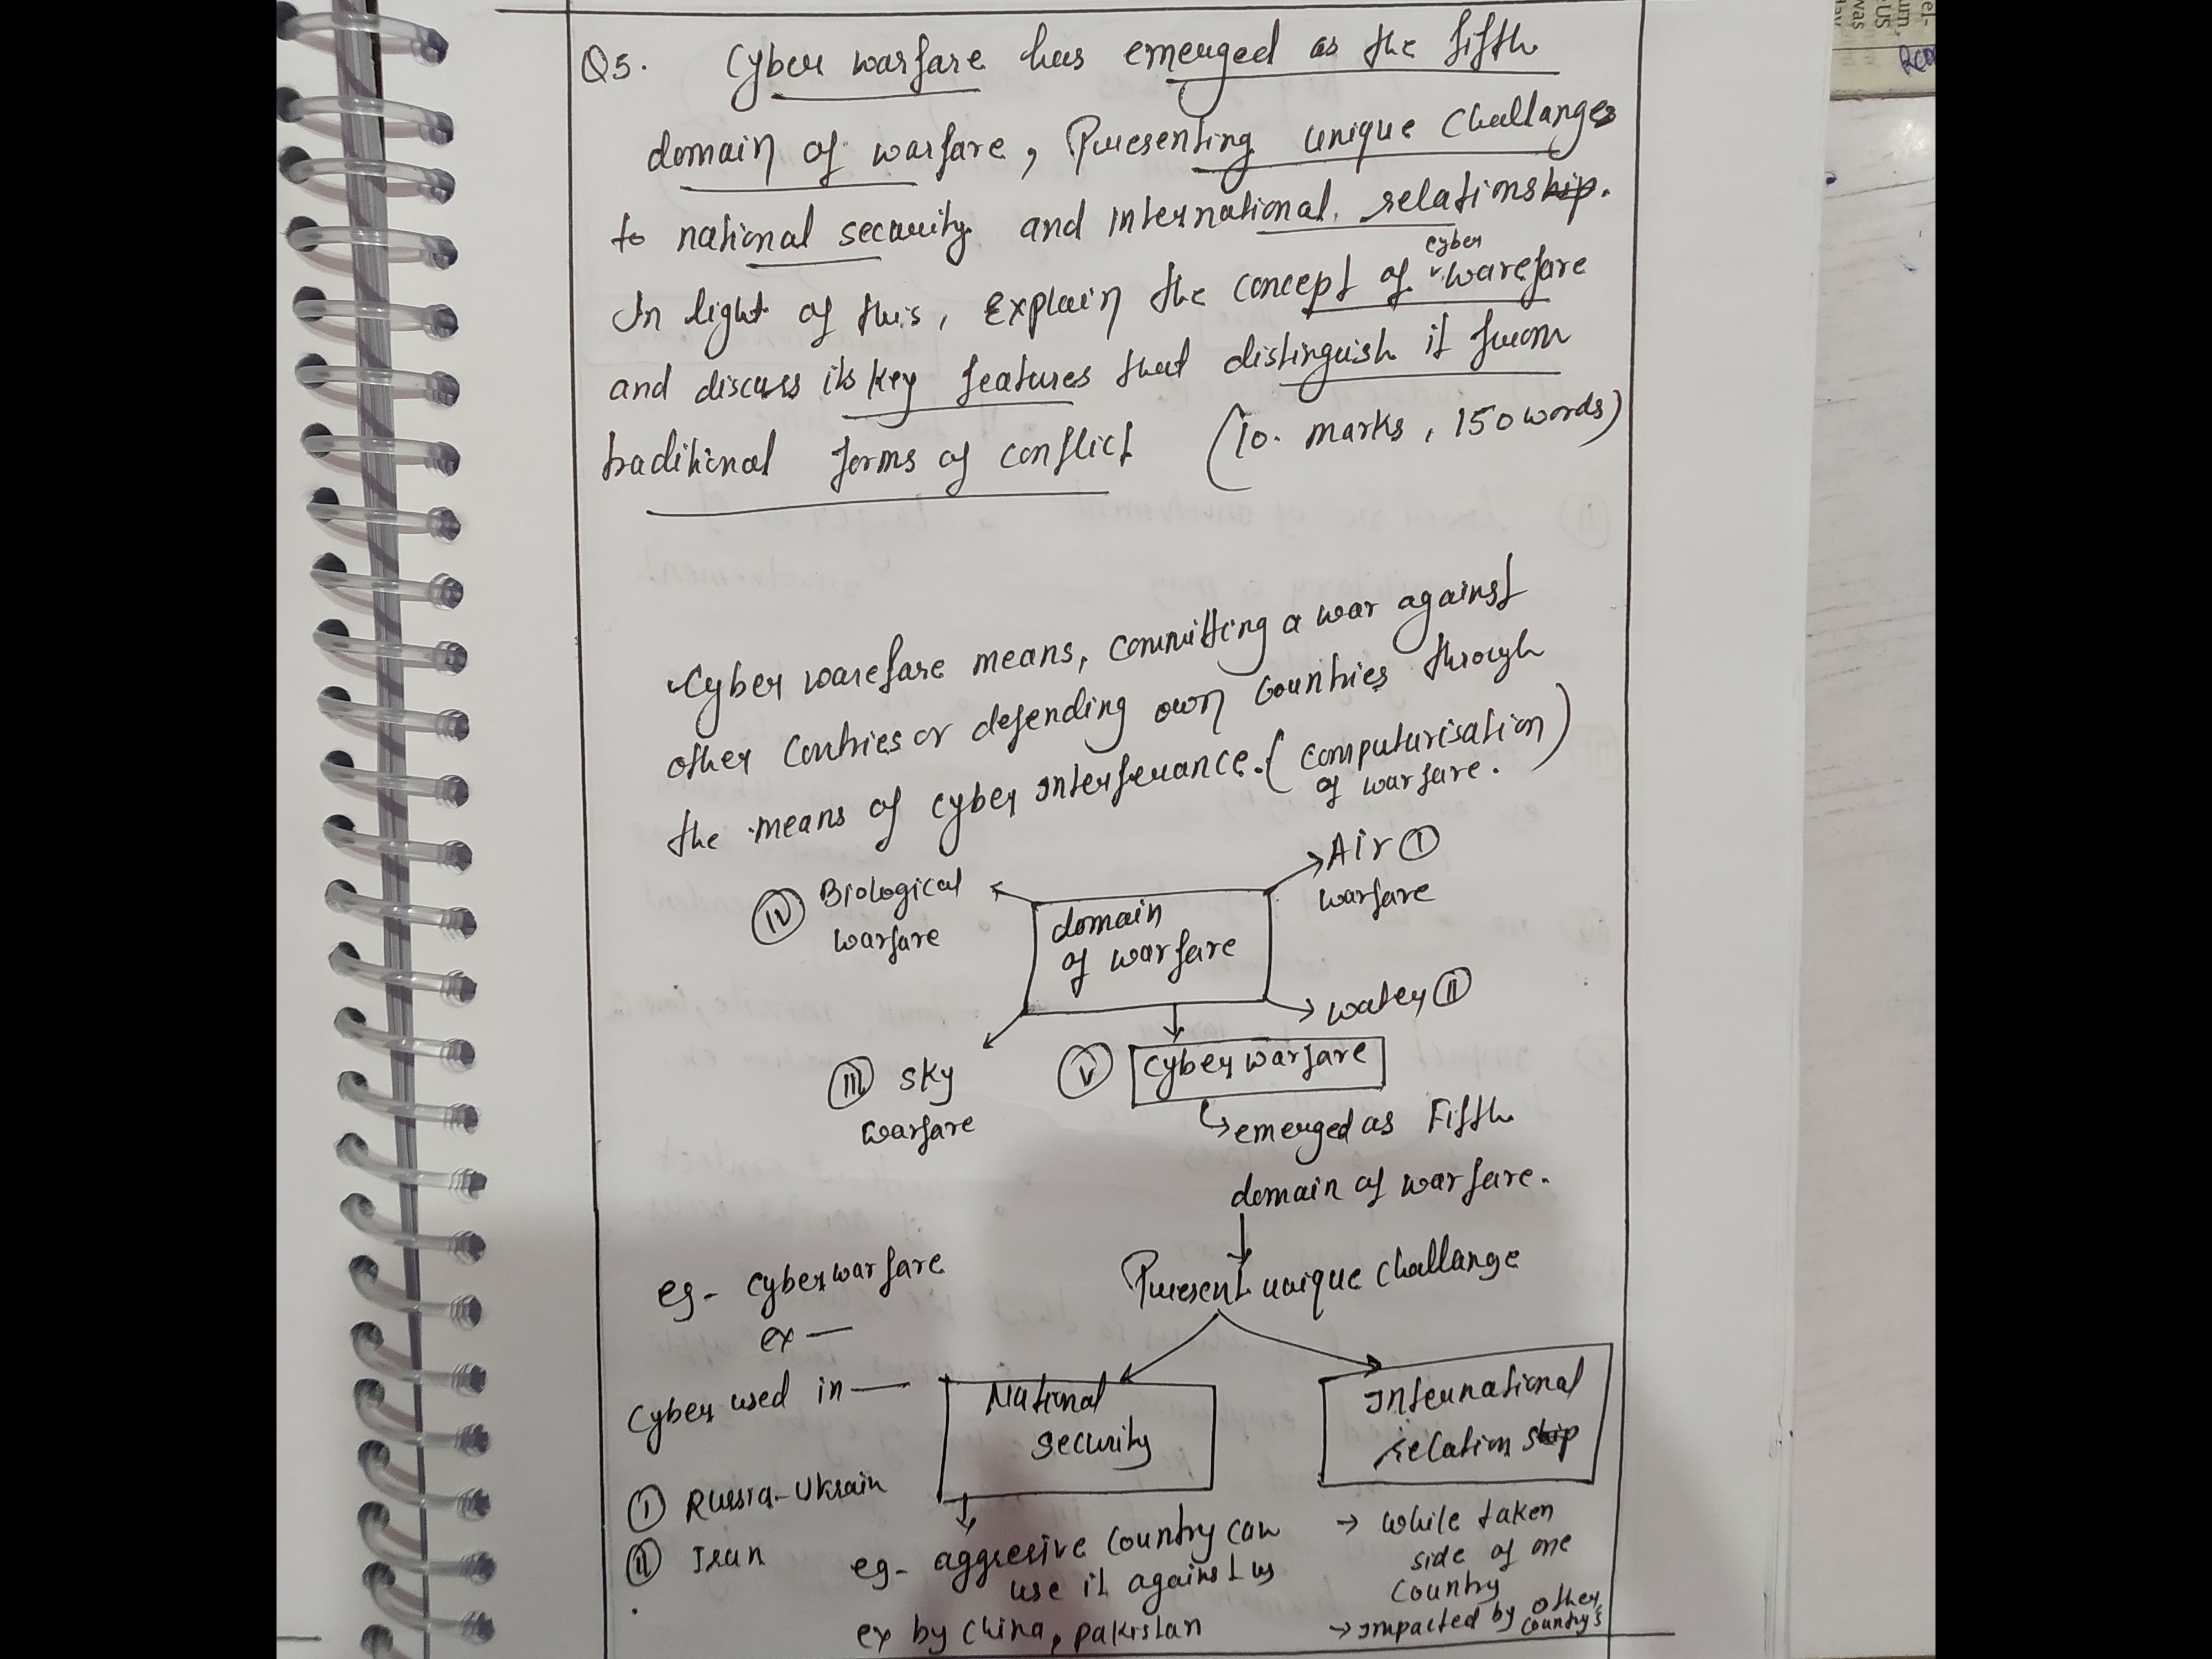 Q5. Cyber warfare has emerged as the fifth
domain of warfare, Presenting unique challanges
to national security and international relationship.
In light of this, explain the concept of cyber warefare
and discuss its key features that distinguish it from
traditional forms of conflict (10. marks, 150 words)
Cyber warefare means, committing a war against
other Contries or defending own countries through
the means of cyber interferance. (computurisation
of warfare.)
Air I
warfare
IV Biological
warfare
domain
of warfare
water II
III sky
warfare
V cyber warfare
emerged as Fifth
domain of warfare.
Present unique challange
eg- cyberwarfare
ex —
Cyber used in —
I Russia-Ukrain
II Iran
National
security
eg- aggresive country can
use it against us
ex by China, pakistan
International
relationship
→ while taken
side of one
country
→ impacted by other
country's